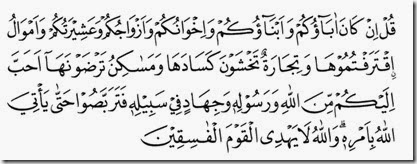 قُلْ اِنْ كَانَ اٰبَاۤؤُكُمْ وَاَبْنَاۤؤُكُمْ وَاِخْوَانُكُمْ وَاَزْوَاجُكُمْ وَعَشِيْرَتُكُمْ وَاَمْوَالُ
ࣙاقْتَرَفْتُمُوْهَا وَتِجَارَةٌ تَخْشَوْنَ كَسَادَهَا وَمَسٰكِنُ تَرْضَوْنَهَآ اَحَبَّ
اِلَيْكُمْ مِّنَ اللّٰهِ وَرَسُوْلِهٖ وَجِهَادٍ فِيْ سَبِيْلِهٖ فَتَرَبَّصُوْا حَتّٰى يَأْتِيَ
اللّٰهُ بِاَمْرِهٖۗ وَاللّٰهُ لَا يَهْدِى الْقَوْمَ الْفٰسِقِيْنَ